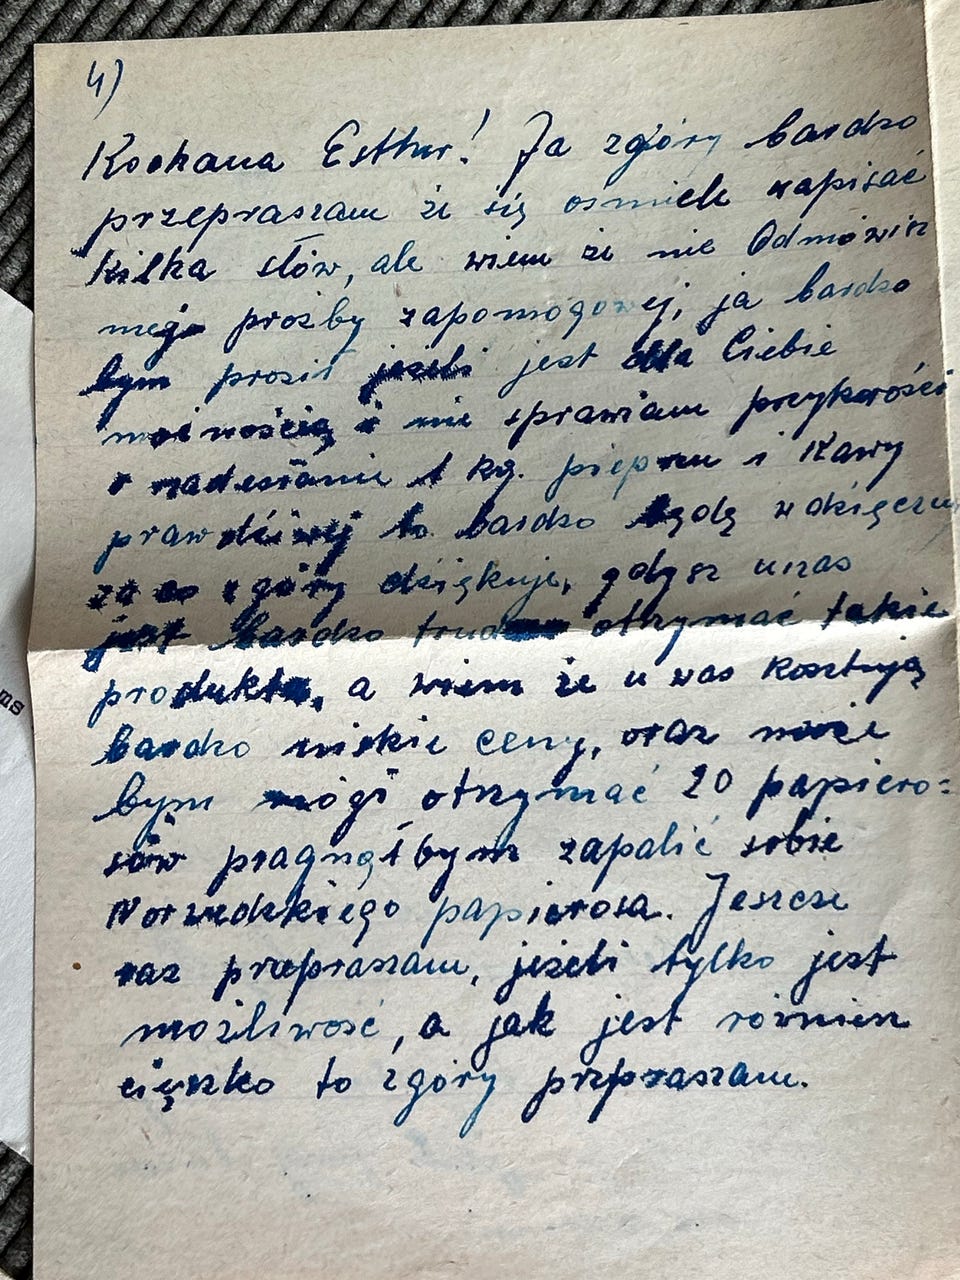 4)
Kochana Esther! Ja zgóry bardzo
przepraszam że się ośmiele napisać
kilka słów, ale wiem że nie Odmówisz
mego prośby zapomogowej, ja bardzo
bym prosił jeżeli jest dla Ciebie
możnością i nie sprawiam przykrości
o nadesłanie 1 kg. pieprzu i Kawy
prawdźiwej to bardzo będę wdzięczny
za co zgóry dziękuje, gdysz unas
jest bardzo trudno otrzymać takie
produkta, a wiem że u was Kosztują
bardzo niskie ceny, oraz może
bym mógł otrzymać 20 papiero=
sów pragnąłbym zapalić sobie
Norwedzkiego papierosa. Jeszcze
raz przepraszam, jeżeli tylko jest
możliwość, a jak jest rożnież
cięszko to zgóry przpraszam.
ms